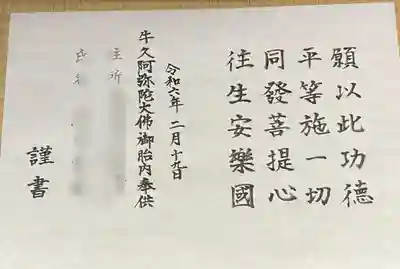 願以此功德
平等施一切
同發菩提心
往生安樂國
令和六年二月十九日
牛久阿弥陀大佛御胎内奉供
主所
氏名
謹書